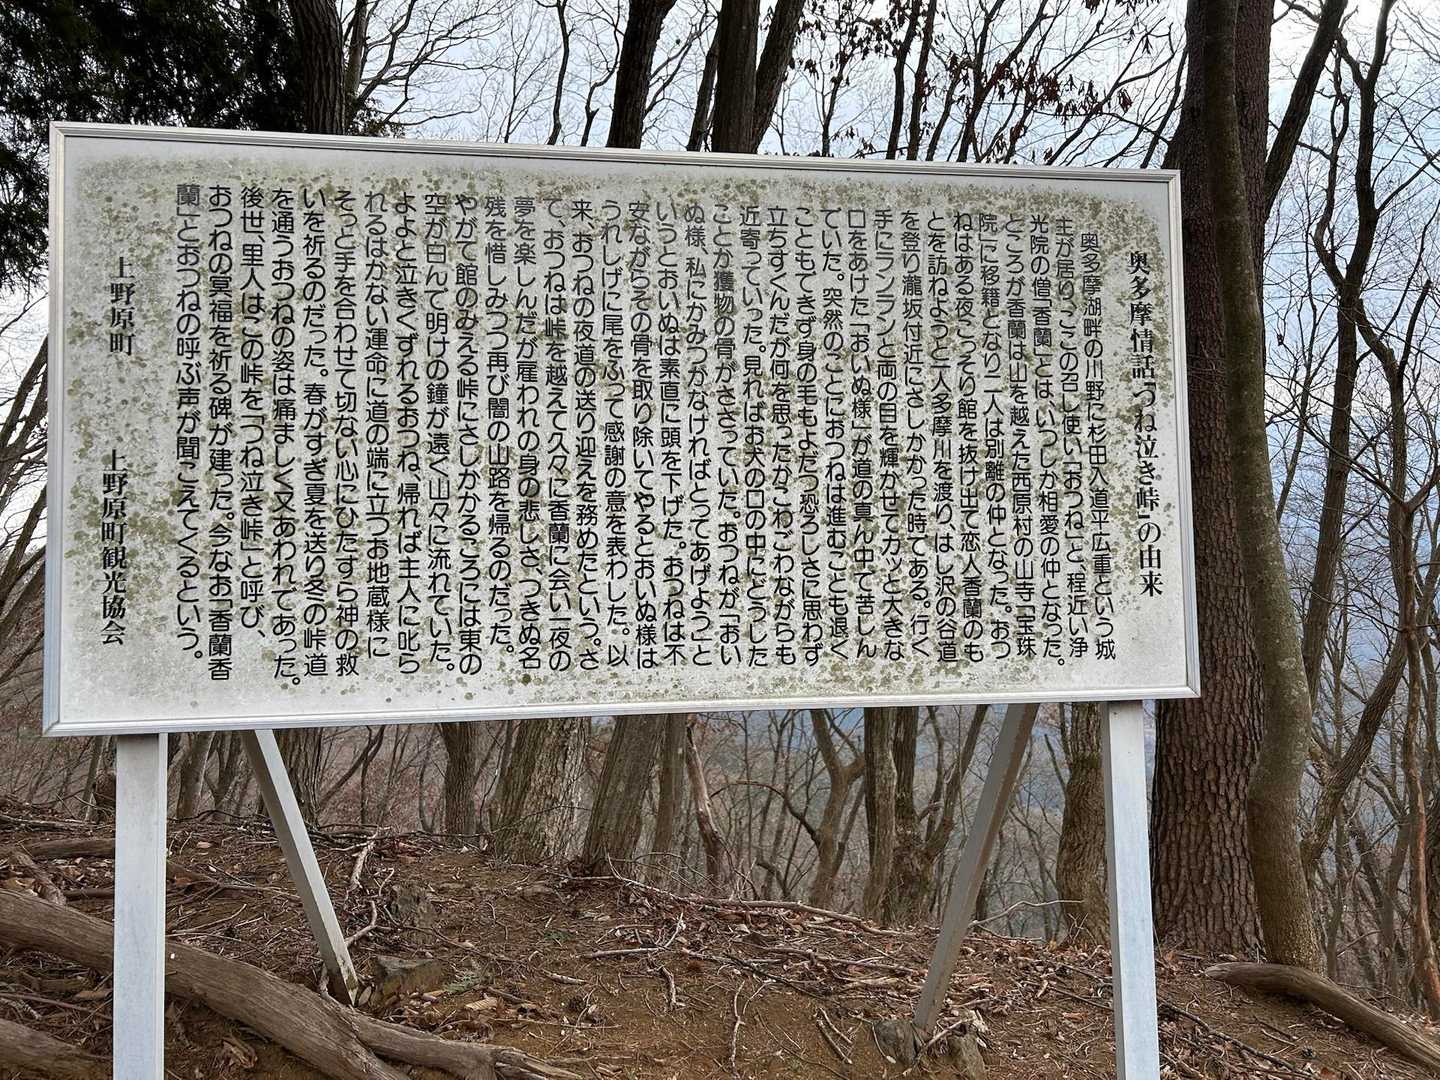 奥多摩情話「つね泣き峠」の由来
奥多摩湖畔の川野に杉田入道平広重という城
主が居り、ここの召し使い「おつね」と、程近い浄
光院の僧「香蘭」とは、いつしか相愛の仲となった。
ところが香蘭は山を越えた西原村の山寺「宝珠
院」に移籍となり二人は別離の仲となった。おつ
ねはある夜こっそり館を抜け出て恋人香蘭のも
とを訪ねようと一人多摩川を渡り、はし沢の谷道
を登り瀧坂付近にさしかかった時である。行く
手にランランと両の目を輝かせてカッと大きな
口をあけた「おいぬ様」が道の真ん中で苦しん
でいた。突然のことにおつねは進むことも退く
こともできず身の毛もよだつ恐ろしさに思わず
立ちすくんだが何を思ったかこわごわながらも
近寄っていった。見ればお犬の口の中にどうした
ことか獲物の骨がささっていた。おつねが「おい
ぬ様、私にかみつかなければとってあげよう」と
いうとおいぬは素直に頭を下げた。おつねは不
安ながらその骨を取り除いてやるとおいぬ様は
うれしげに尾をふって感謝の意を表わした。以
来、おつねの夜道の送り迎えを務めたという。さ
て、おつねは峠を越えて久々に香蘭に会い一夜の
夢を楽しんだが雇われの身の悲しさ、つきぬ名
残を惜しみつつ再び闇の山路を帰るのだった。
やがて館のみえる峠にさしかかるころには東の
空が白んで明けの鐘が遠く山々に流れていた。
よよと泣きくずれるおつね、帰れば主人に叱ら
れるはかない運命に道の端に立つお地蔵様に
そっと手を合わせて切ない心にひたすら神の救
いを祈るのだった。春がすぎ夏を送り冬の峠道
を通うおつねの姿は痛ましく又あわれであった。
後世、里人はこの峠を「つね泣き峠」と呼び、
おつねの冥福を祈る碑が建った。今なお「香蘭香
蘭」とおつねの呼ぶ声が聞こえてくるという。
上野原町　上野原町観光協会